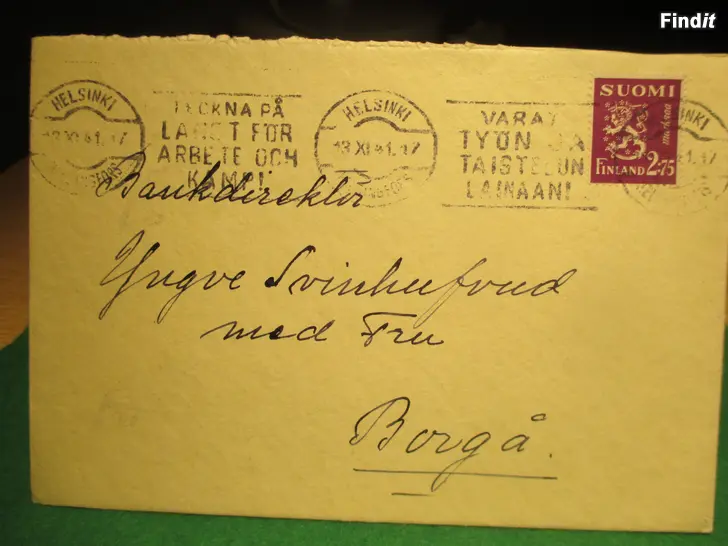 Findit
HELSINKI
13 XI 41.17
HELSINGFORS
TECKNA PÅ
LÅNET FÖR
ARBETE OCH
KAMP!
HELSINKI
13 XI 41.17
HELSINGFORS
VARAT
TYÖN JA
TAISTELUN
LAINAAN!
SUOMI
mk 2,75
FINLAND 2:75
Bankdirektör
Yngve Svinhufvud
med Fru
Borgå.